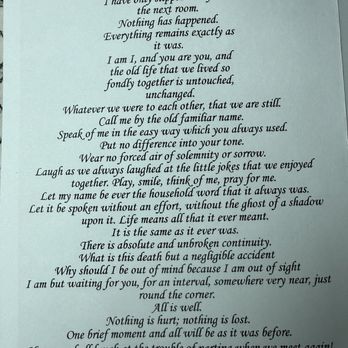 I have only
the next room.
Nothing has happened.
Everything remains exactly as
it was.
I am I, and you are you, and
the old life that we lived so
fondly together is untouched,
unchanged.
Whatever we were to each other, that we are still.
Call me by the old familiar name.
Speak of me in the easy way which you always used.
Put no difference into your tone.
Wear no forced air of solemnity or sorrow.
Laugh as we always laughed at the little jokes that we enjoyed
together. Play, smile, think of me, pray for me.
Let my name be ever the household word that it always was.
Let it be spoken without an effort, without the ghost of a shadow
upon it. Life means all that it ever meant.
It is the same as it ever was.
There is absolute and unbroken continuity.
What is this death but a negligible accident
Why should I be out of mind because I am out of sight
I am but waiting for you, for an interval, somewhere very near, just
round the corner.
All is well.
Nothing is hurt; nothing is lost.
One brief moment and all will be as it was before.
at the trouble of parting when we meet again!